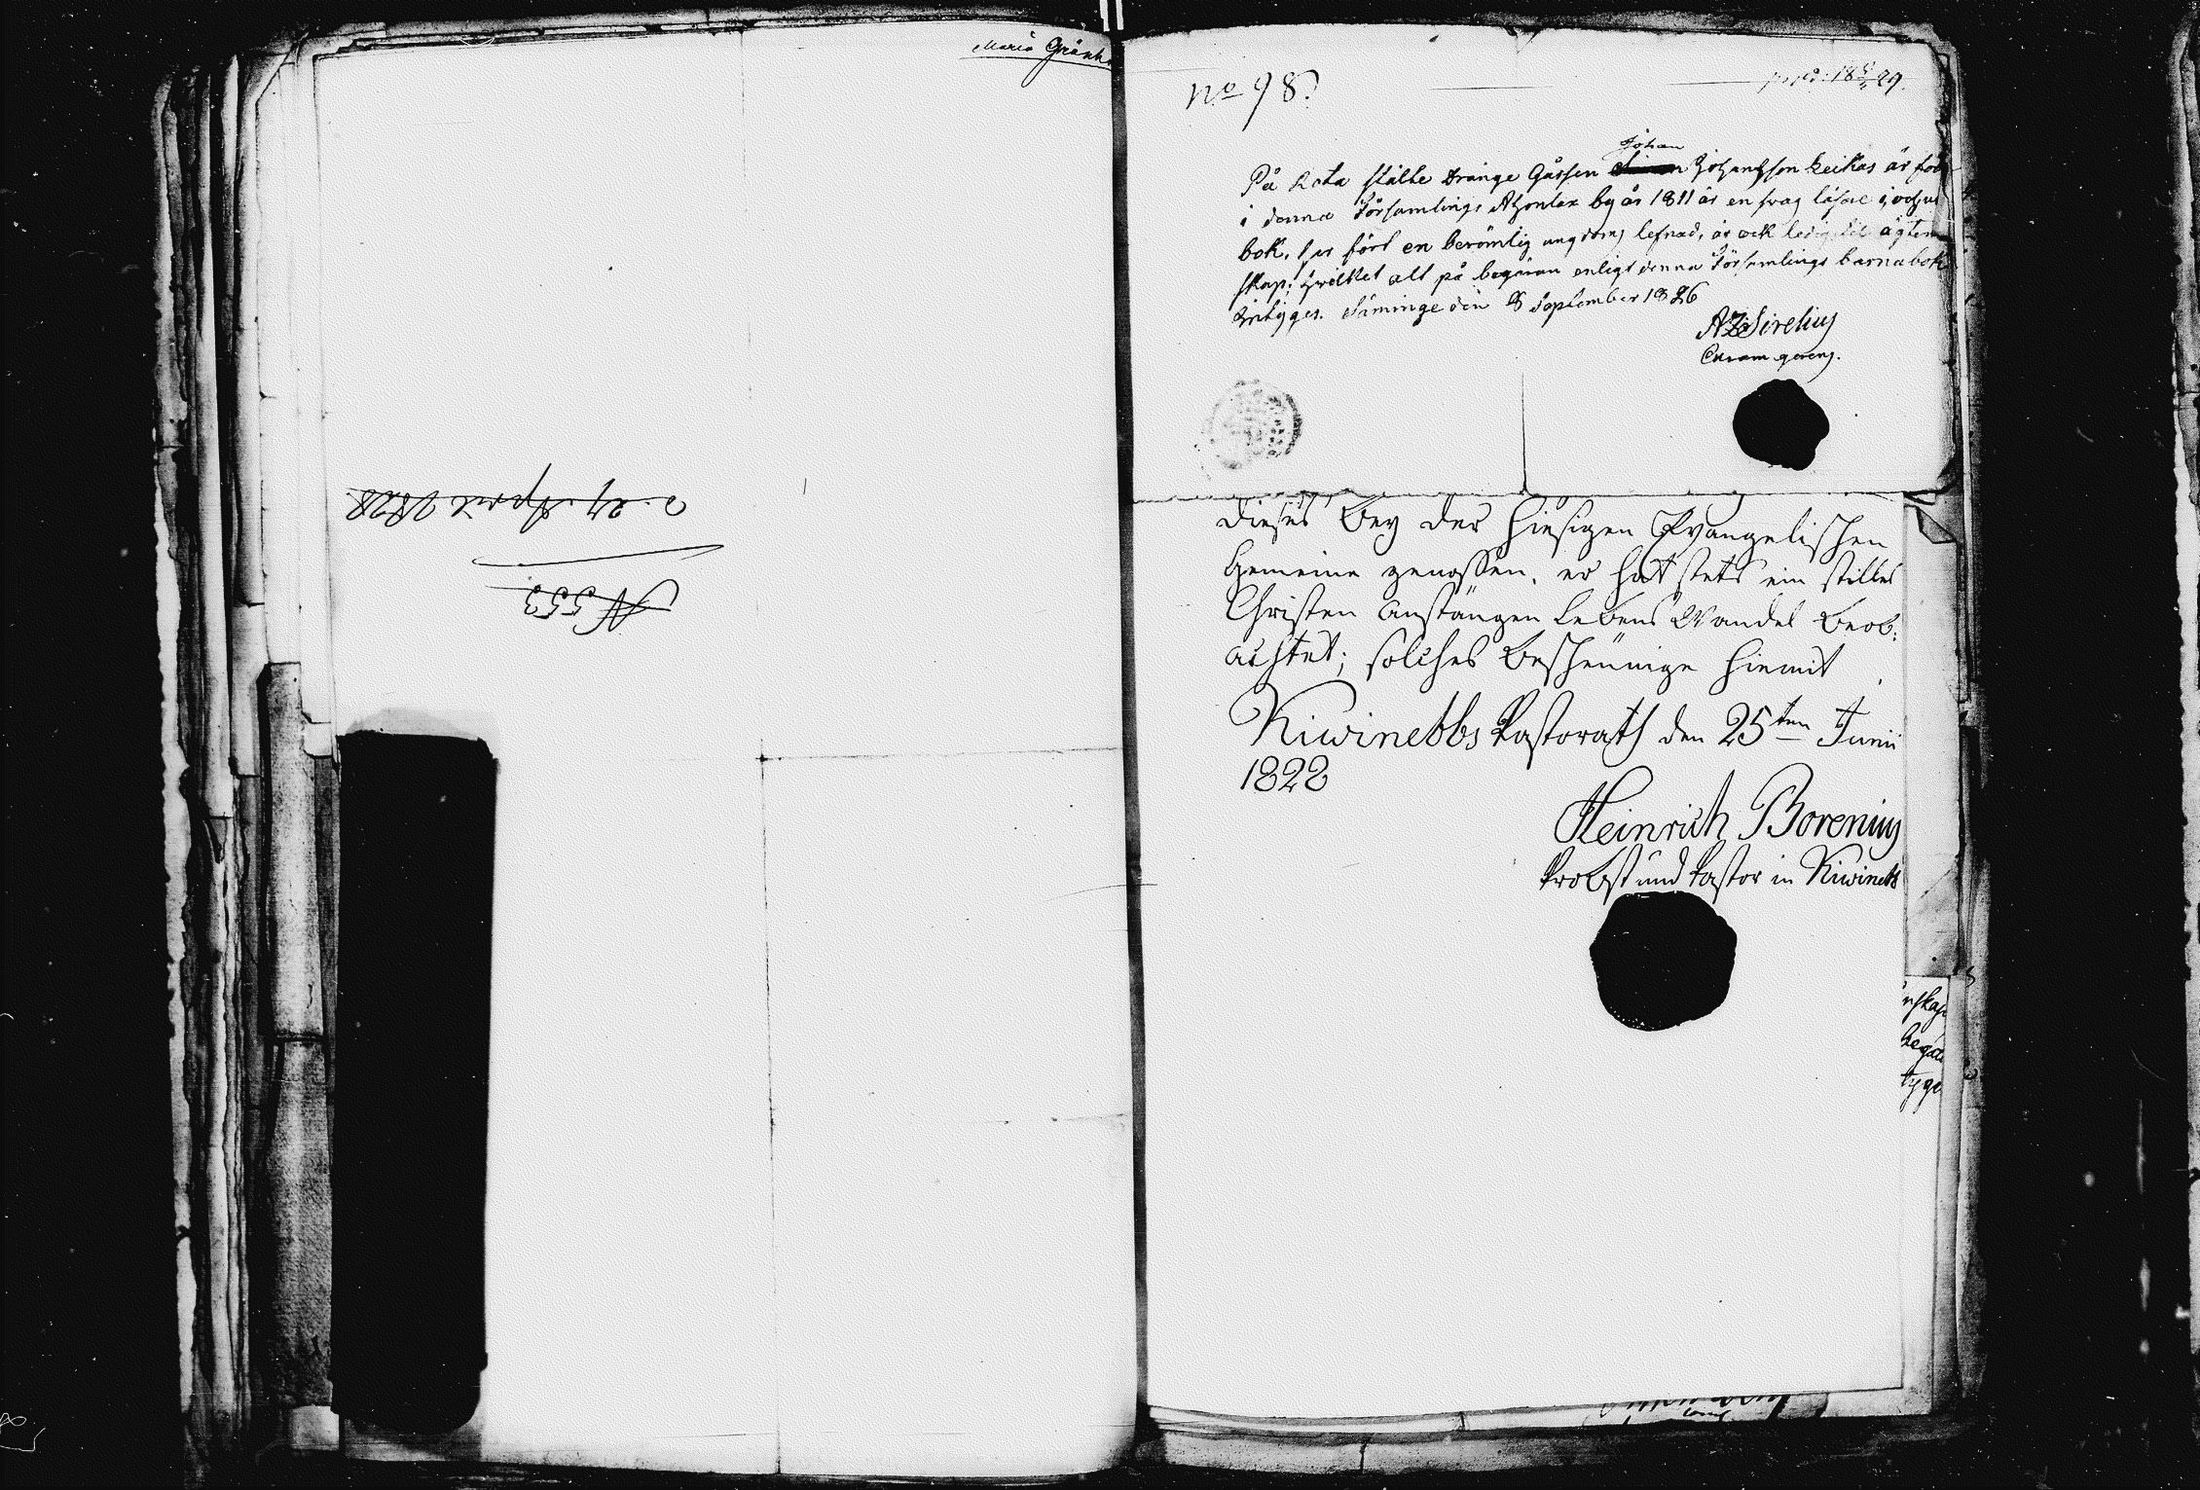 Maria Gränh
d. 29 April 1828
N 553
No 98.
Johan
På Rota stälte Dränge Gåssen Johansson Keikas är föd
i denna Församlings Ahonlax by år 1811 är en svag läsare i och ur
bok, har fört en berömlig ungdoms lefnad, är ock ledig til ägten
skap; hvilket alt på begäran enligt denna Församlings barnabok
intyges. Säminge den 8 September 1826
A Z Sirelius
Curam gerens.
dieses bey der hiesigen Evangelischen
Gemeine genossen, er hat stets ein stilles
Christen anstängen Lebens Wandel beob:
achtet; solches bescheunige hiemit
Kiwinebbs Pastorath den 25ten Junii
1828
Heinrich Borenius
Probst und Pastor in Kiwinebb
nskap
Begär
tyge